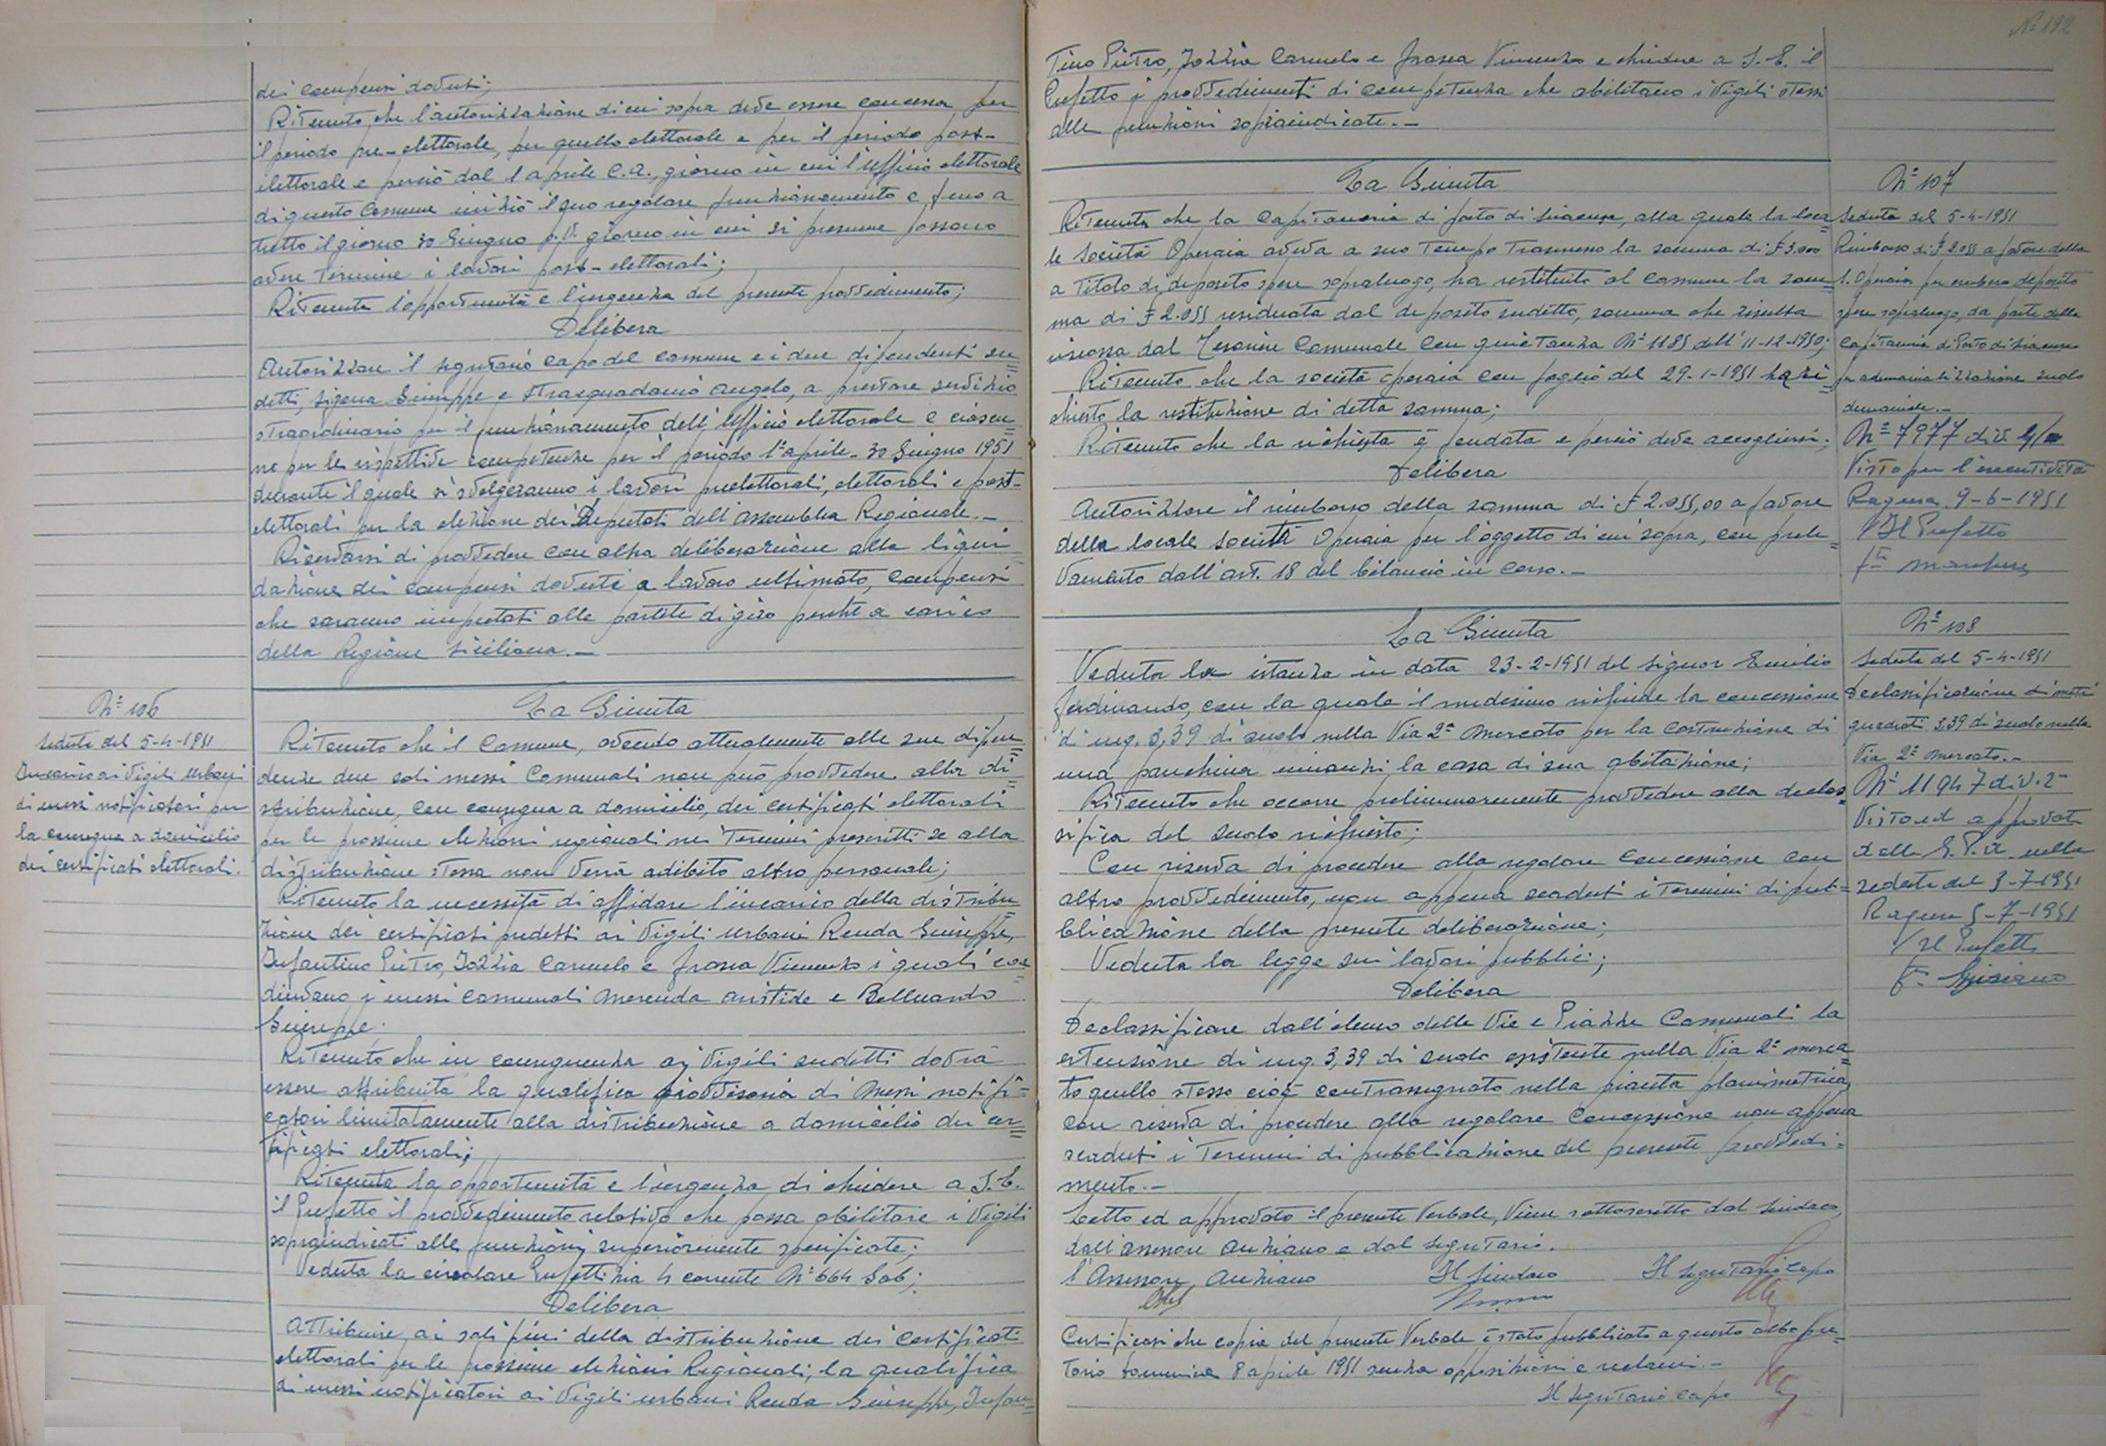 dei compensi dovuti;
Ritenuto che l'autorizzazione di cui sopra deve essere concessa per
il periodo pre-elettorale, per quello elettorale e per il periodo post-
elettorale e perciò dal 1 aprile c.a., giorno in cui l'Ufficio elettorale
di questo Comune iniziò il suo regolare funzionamento e fino a
tutto il giorno 30 Giugno p.v. giorno in cui si presume possano
avere termine i lavori post-elettorali;
Ritenuta l'opportunità e l'urgenza del presente provvedimento;
Delibera
Autorizzare il segretario capo del comune e i due dipendenti su=
detti, Sigona Giuseppe e Stracquadanio Angelo, a prestare servizio
straordinario per il funzionamento dell'Ufficio elettorale e ciascu=
no per le rispettive competenze per il periodo 1° aprile - 30 Giugno 1951
durante il quale si svolgeranno i lavori preelettorali, elettorali e post-
elettorali per la elezione dei Deputati dell'Assemblea Regionale.-
Riservarsi di provvedere con altra deliberazione alla liqui=
dazione dei compensi dovuti a lavoro ultimato, compensi
che saranno imputati alle partite di giro perché a carico
della Regione Siciliana.-
N° 106
seduta del 5-4-1951
Incarico ai Vigili Urbani
di messi notificatori per
la consegna a domicilio
dei certificati elettorali.
La Giunta
Ritenuto che il Comune, avendo attualmente alle sue dipen=
denze due soli messi Comunali non può provvedere alla di=
stribuzione, con consegna a domicilio, dei certificati elettorali
per le prossime elezioni regionali nei termini prescritti se alla
distribuzione stessa non verrà adibito altro personale;
Ritenuto la necessità di affidare l'incarico della distribu
zione dei certificati predetti ai Vigili Urbani Renda Giuseppe,
Infantino Pietro, Iozzia Carmelo e Frasca Vincenzo i quali coa
diuvano i messi comunali Merenda Aristide e Belluardo
Giuseppe.
Ritenuto che in conseguenza ai Vigili sudetti dovrà
essere attribuita la qualifica provvisoria di Messi notifi=
catori limitatamente alla distribuzione a domicilio dei cer=
tificati elettorali;
Ritenuta la opportunità e l'urgenza di chiedere a S.E.
il Prefetto il provvedimento relativo che possa abilitare i Vigili
sopraindicati alle funzioni superiormente specificate;
Veduta la circolare Prefettizia 4 corrente N° 664 Gab;
Delibera
Attribuire, ai soli fini della distribuzione dei certificati
elettorali per le prossime elezioni Regionali, la qualifica
di messi notificatori ai Vigili urbani Renda Giuseppe, Infan=
N° 192
Tino Pietro, Iozzia Carmelo e Frasca Vincenzo e chiedere a S.E. il
Prefetto i provvedimenti di competenza che abilitano i Vigili stessi
alle funzioni sopraindicate.-
La Giunta
Ritenuto che la Capitaneria di porto di Siracusa, alla quale la loca
le Società Operaia aveva a suo tempo trasmesso la somma di £ 3.000
a titolo di deposito spese sopraluogo, ha restituito al comune la som=
ma di £ 2.055 residuata dal deposito sudetto, somma che risulta
riscossa dal Tesoriere Comunale con quietanza N° 1185 dell'11-12-1950;
Ritenuto che la società operaia con foglio del 29-1-1951 ha ri=
chiesto la restituzione di detta somma;
Ritenuto che la richiesta è fondata e perciò deve accogliersi;
Delibera
Autorizzare il rimborso della somma di £ 2.055,00 a favore
della locale società Operaia per l'oggetto di cui sopra, con prele=
vamento dall'art. 18 del bilancio in corso.-
N° 107
Seduta del 5-4-1951
Rimborso di £ 2.055 a favore della
S. Operaia per rimborso deposito
spese sopraluogo, da parte della
Capitaneria di Porto di Siracusa
per sdemanializzazione suolo
demaniale.-
N° 7977 div.
Visto per l'esecutività
Ragusa 9-6-1951
Il Prefetto
La Giunta
Veduta la istanza in data 23-2-1951 del signor Emilio
Ferdinando, con la quale il medesimo richiede la concessione
di mq. 3,39 di suolo nella Via 2ª Mercato per la costruzione di
una panchina innanzi la casa di sua abitazione;
Ritenuto che occorre preliminarmente provvedere alla declas=
sifica del suolo richiesto;
Con riserva di procedere alla regolare concessione con
altro provvedimento, non appena scaduti i termini di pub=
blicazione della presente deliberazione;
Veduta la legge sui lavori pubblici;
Delibera
Declassificare dall'elenco delle Vie e Piazze Comunali la
estensione di mq. 3,39 di suolo esistente nella Via 2ª merca=
to quello stesso cioè contrassegnato nella pianta planimetrica
con riserva di procedere alla regolare concessione non appena
scaduti i termini di pubblicazione del presente provvedi=
mento.-
Letto ed approvato il presente Verbale, viene sottoscritto dal Sindaco,
dall'assessore anziano e dal segretario.
l'Assessore Anziano Il Sindaco Il Segretario Capo
Certificasi che copia del presente Verbale è stato pubblicato a questo albo pre=
torio domenica 8 aprile 1951 senza opposizioni e reclami.-
Il Segretario Capo
N° 108
Seduta del 5-4-1951
Declassificazione di metri
quadrati 3,39 di suolo nella
Via 2ª Mercato.-
N° 11947 div. 2ª
Visto ed approvato
dalla G.P.A. nella
seduta del 3-7-1951
Ragusa 5-7-1951
Il Prefetto